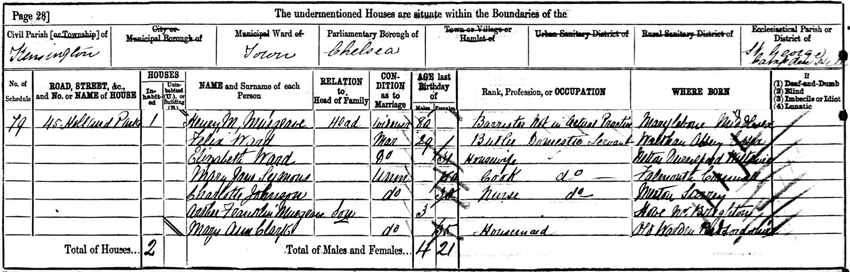 Page 28]
The undermentioned Houses are situate within the Boundaries of the
Civil Parish [or Township] of
City or Municipal Borough of
Municipal Ward of
Parliamentary Borough of
Town or Village or Hamlet of
Urban Sanitary District of
Rural Sanitary District of
Ecclesiastical Parish or District of
Kensington
Town
Chelsea
St. George
Campden Hill
No. of Schedule
ROAD, STREET, &c., and No. or NAME of HOUSE
HOUSES
Inhabited
Uninhabited (U.), or Building (B.)
NAME and Surname of each Person
RELATION to Head of Family
CONDITION as to Marriage
AGE last Birthday of
Males
Females
Rank, Profession, or OCCUPATION
WHERE BORN
If
(1) Deaf-and-Dumb
(2) Blind
(3) Imbecile or Idiot
(4) Lunatic
79 45 Holland Park 1 Henry M. Musgrave Head Widower Barrister Not in Actual Practice Marylebone
Felix Ward Mar 29 Butler Domestic Servant Waltham Abbey Essex
Elizabeth Ward Do Housewife
Mary Jane Unm Cook do Falmouth Cornwall
Charlotte Johnson do Nurse do Surrey
Franklin Musgrave Son 3 Hove Nr Brighton
Mary Ann Clark do Housemaid Old Warden Bedfordshire
Total of Houses... 2 Total of Males and Females... 4 21